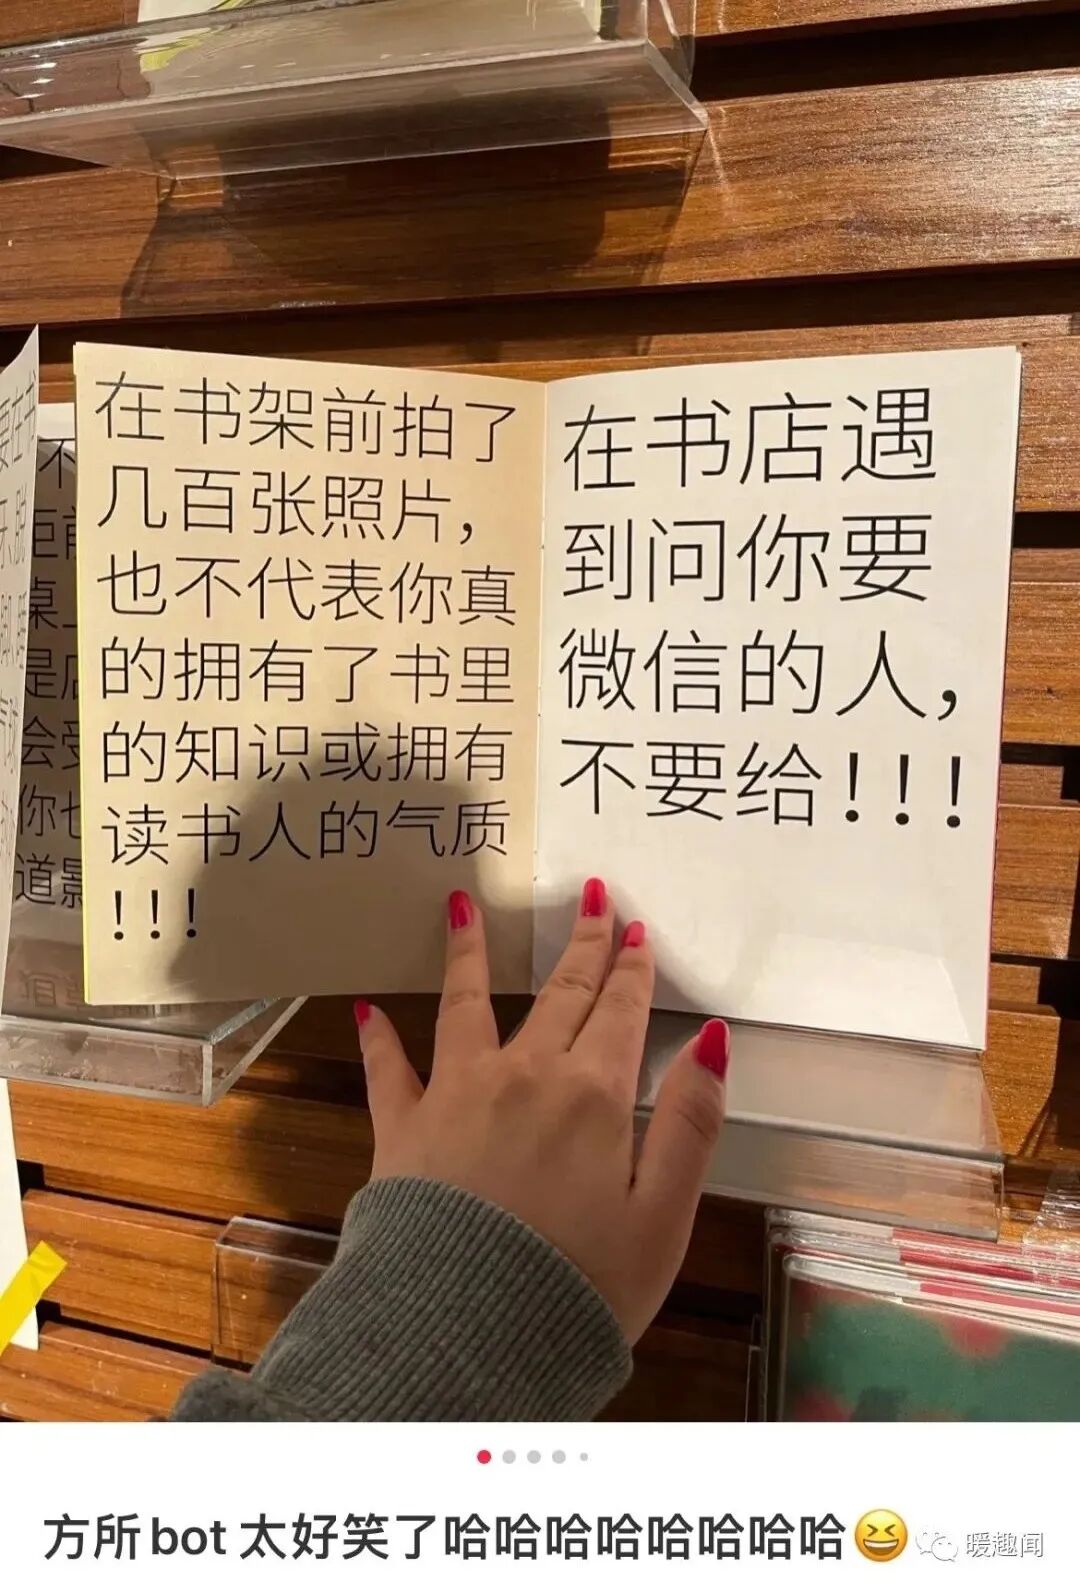 在书架前拍了
几百张照片，
也不代表你真
的拥有了书里
的知识或拥有
读书人的气质
！！！
在书店遇
到问你要
微信的人，
不要给！！！
要在书
不
是店
会受
你也
道影
方所bot 太好笑了哈哈哈哈哈哈哈哈😆
暖趣闻